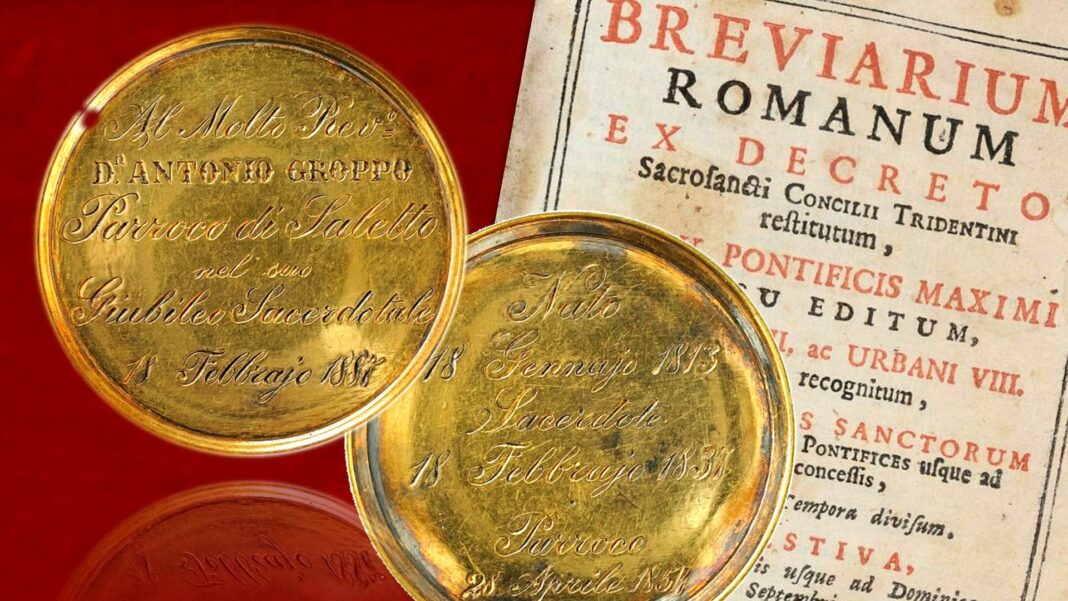 Al Molto Rev.º
D.ⁿ ANTONIO GROPPO
Parroco di Saletto
nel suo
Giubileo Sacerdotale
18 Febbrajo 1887
Nato
18 Gennajo 1813
Sacerdote
18 Febbrajo 1837
Parroco
28 Aprile
BREVIARIUM
ROMANUM
EX DECRETO
Sacrosancti CONCILII TRIDENTINI
restitutum,
PONTIFICIS MAXIMI
EDITUM,
ac URBANI VIII.
recognitum,
SANCTORUM
PONTIFICES usque ad
concessis,
Tempora divisum.
STIVA,
usque ad